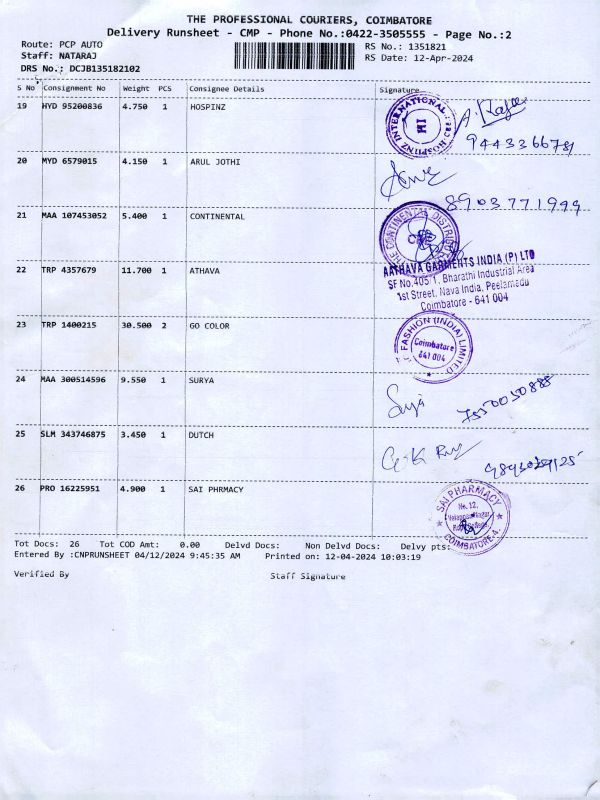 THE PROFESSIONAL COURIERS, COIMBATORE
Delivery Runsheet - CMP - Phone No.:0422-3505555 - Page No.:2
Route: PCP AUTO
RS No.: 1351821
Staff: NATARAJ
RS Date: 12-Apr-2024
DRS No.: DCJB135182102
S No Consignment No Weight PCS Consignee Details Signature
19 HYD 95200836 4.750 1 HOSPINZ
HOSPINZ INTERNATIONAL
HI
9443366781
20 MYD 6579015 4.150 1 ARUL JOTHI
8903771999
21 MAA 107453052 5.400 1 CONTINENTAL
THE CONTINENTAL
22 TRP 4357679 11.700 1 ATHAVA
AATHAVA GARMENTS INDIA (P) LTD
SF No.405/1, Bharathi Industrial Area
1st Street, Nava India, Peelamadu
Coimbatore - 641 004
23 TRP 1400215 30.500 2 GO COLOR
FASHION (INDIA) LIMITED
Coimbatore
641 004
24 MAA 300514596 9.550 1 SURYA
25 SLM 343746875 3.450 1 DUTCH
26 PRO 16225951 4.900 1 SAI PHRMACY
SAI PHARMACY
No. 12,
COIMBATORE-4.
Tot Docs: 26 Tot COD Amt: 0.00 Delvd Docs: Non Delvd Docs: Delvy pts:
Entered By :CNPRUNSHEET 04/12/2024 9:45:35 AM Printed on: 12-04-2024 10:03:19
Verified By Staff Signature